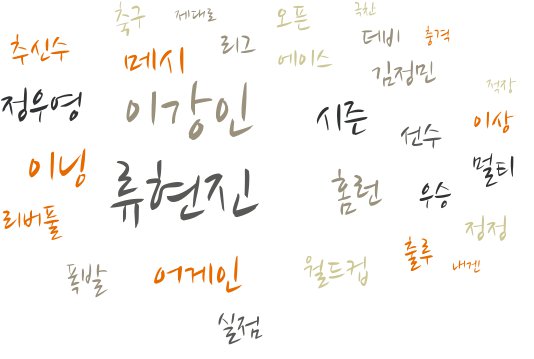 축구 제대로 오픈 극찬
추신수 메시 리그 에이스 데비 충격
김정민 적장
정우영 이강인 시즌 선수 이상
이닝 류현진 홈런 우승 멀티
리버풀 정정
폭발 어게인 월드컵 출루 내겐
실점